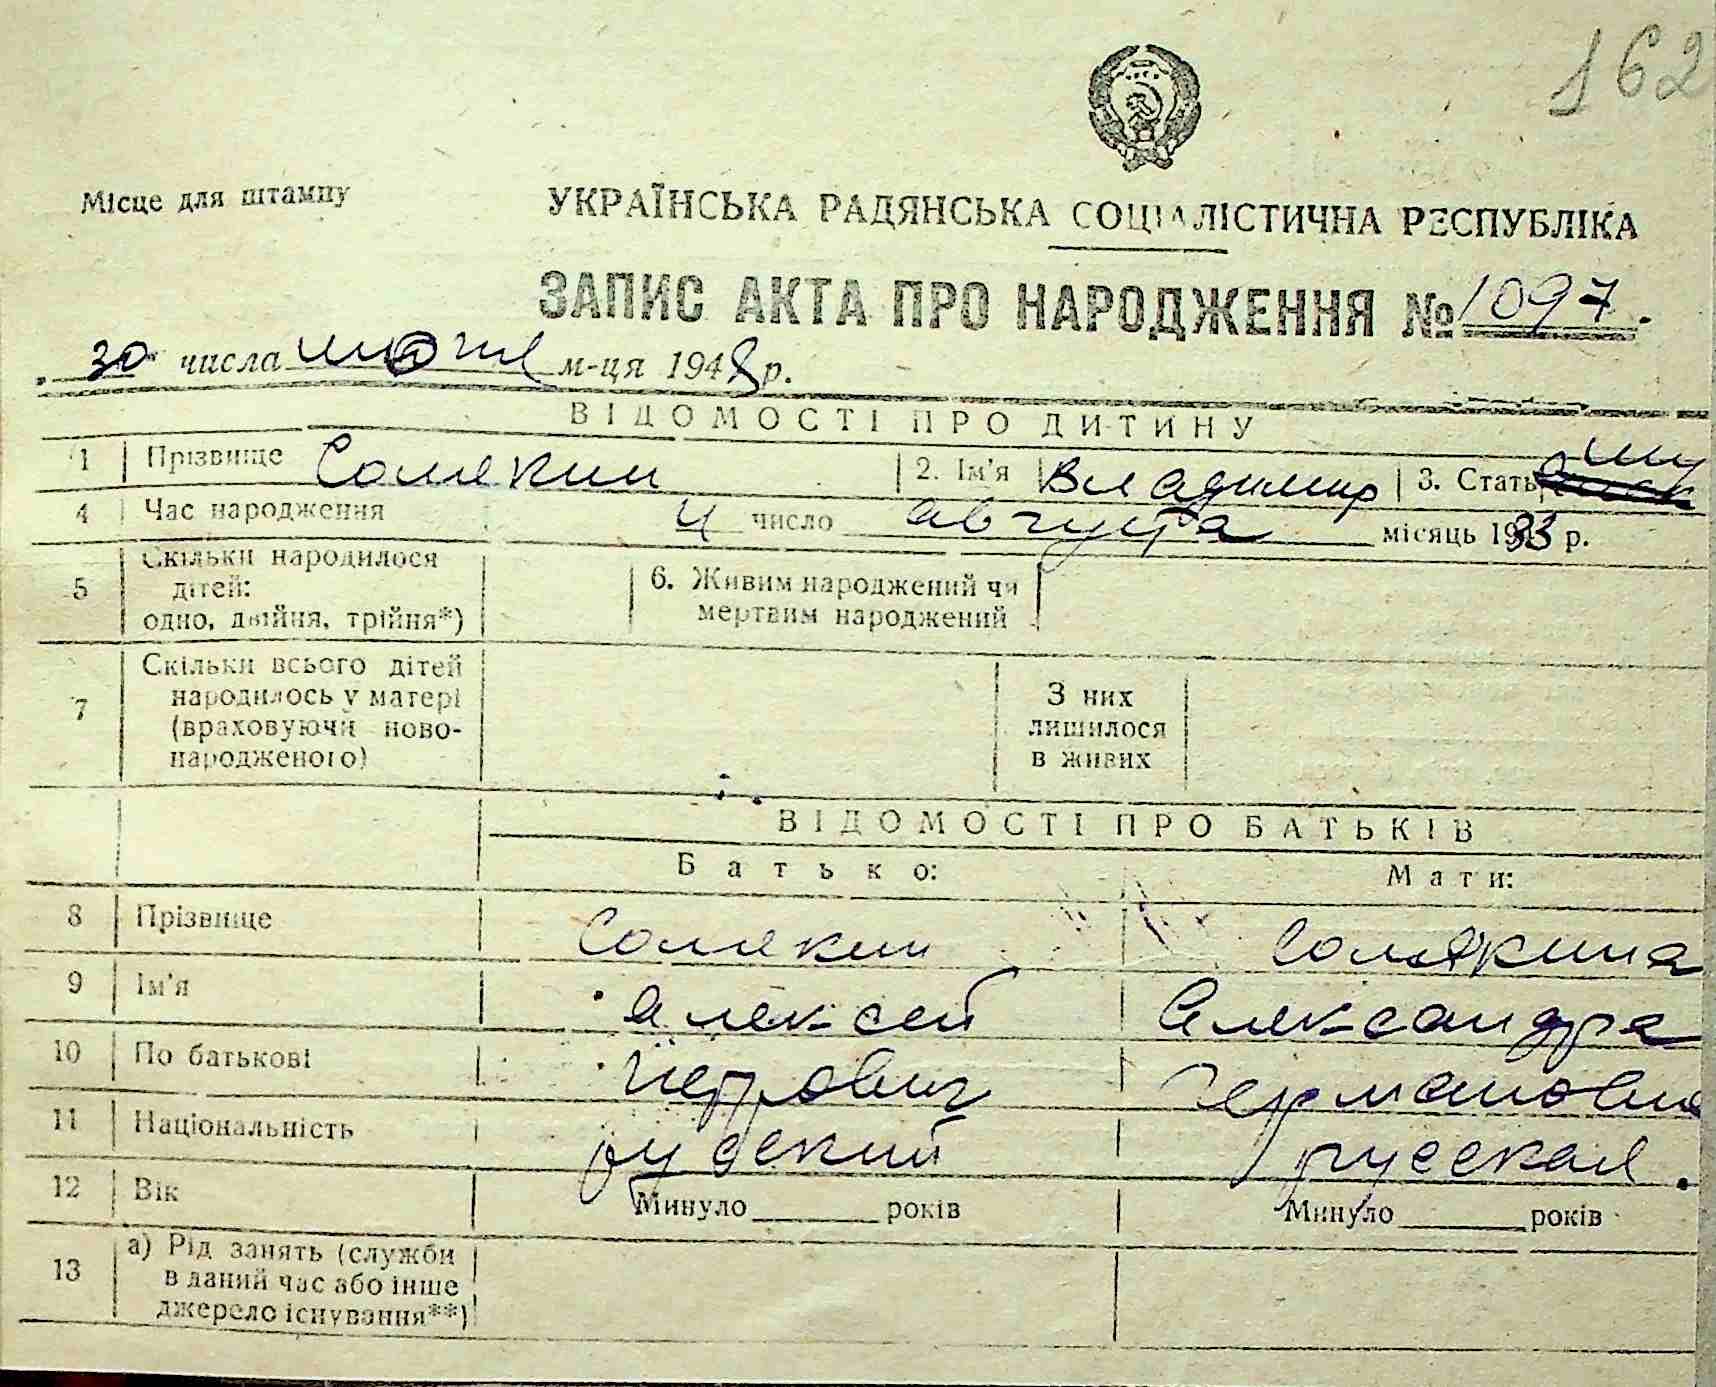 162
УРСР
Місце для штампу
УКРАЇНСЬКА РАДЯНСЬКА СОЦІАЛІСТИЧНА РЕСПУБЛІКА
ЗАПИС АКТА ПРО НАРОДЖЕННЯ № 1097.
30 числа м-ця 1948 р.
ВІДОМОСТІ ПРО ДИТИНУ
1 Прізвище Солякин 2. Ім'я Владимир 3. Стать муж
4 Час народження 4 число августа місяць 1933 р.
5 Скільки народилося дітей: одно, двійня, трійня*) 6. Живим народжений чи мертвим народжений
7 Скільки всього дітей народилось у матері (враховуючи новонародженого) З них лишилося в живих
ВІДОМОСТІ ПРО БАТЬКІВ
Батько: Мати:
8 Прізвище Солякин Солякина
9 Ім'я Алексей Александра
10 По батькові Петрович Германовна
11 Національність русский русская.
12 Вік Минуло ______ років Минуло ______ років
13 а) Рід занять (служби
в даний час або інше
джерело існування**)